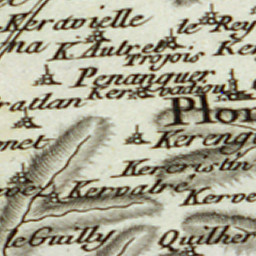 Keravielle
le Rey
na K. Autret Ke
Trojois
Penanquer
ratlan Kervadiou
Plo
met Kerengu
Kercristin
Kervatre Kerve
le Guilly Quilher